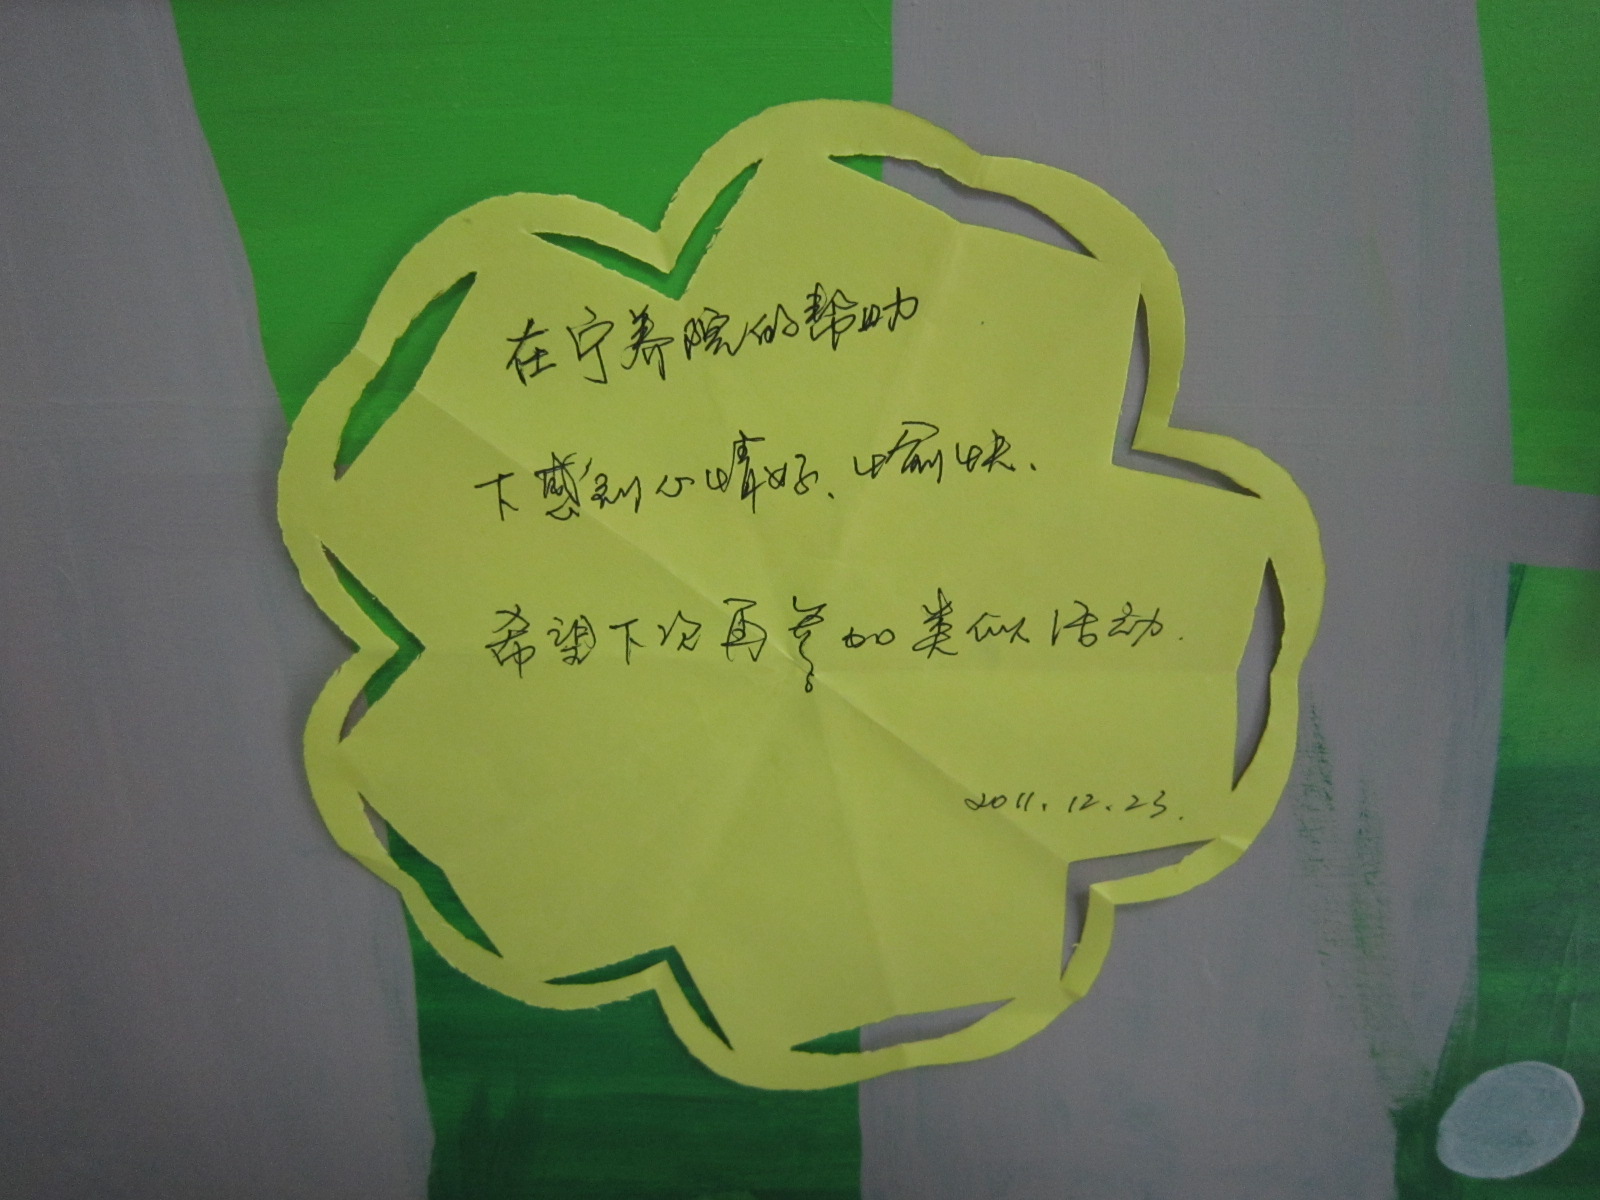 在宁养院的帮助
下感到心情好、愉快.
希望下次再参加类似活动.
2011.12.23.